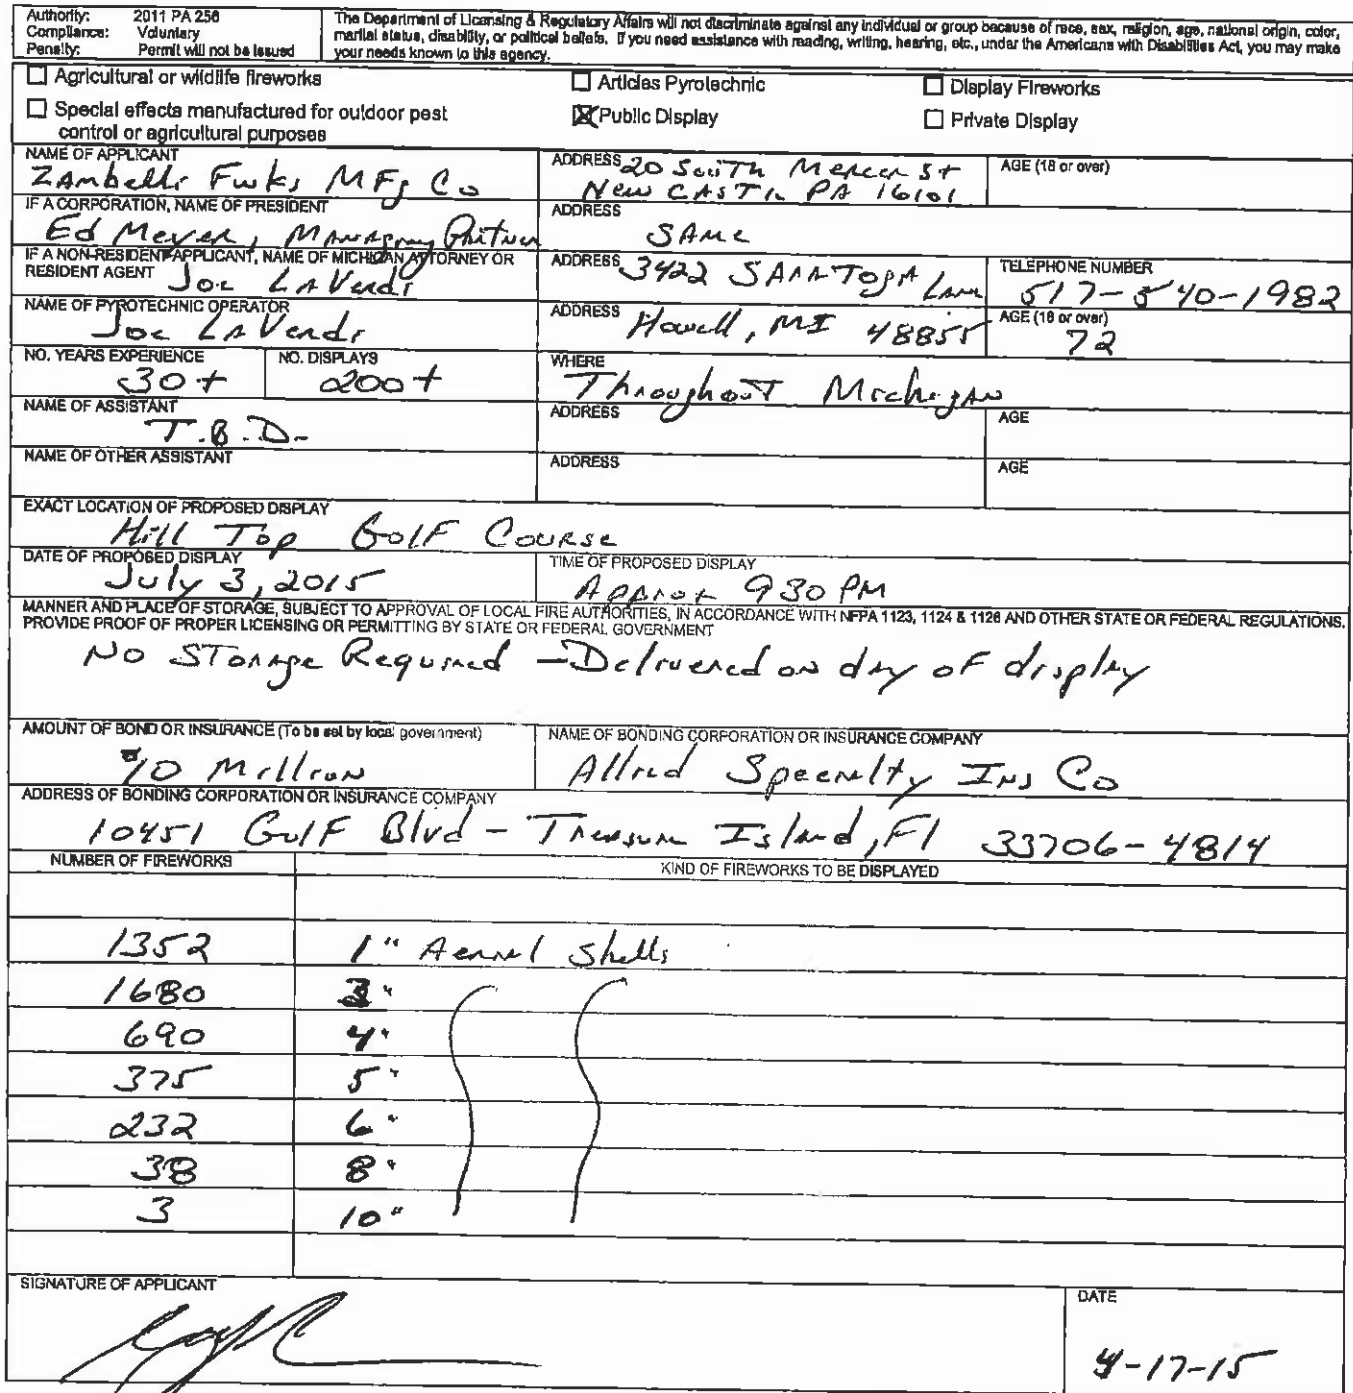 Authority: 2011 PA 256
Compliance: Voluntary
Penalty: Permit will not be issued
The Department of Licensing & Regulatory Affairs will not discriminate against any individual or group because of race, sax, religion, age, national origin, color,
marital status, disability, or political beliefs. If you need assistance with reading, writing, hearing, etc., under the Americans with Disabilities Act, you may make
your needs known to this agency.
Agricultural or wildlife fireworks
Articles Pyrotechnic
Display Fireworks
Special effects manufactured for outdoor pest
control or agricultural purposes
Public Display
Private Display
NAME OF APPLICANT
Zambelli Fwks MFg Co
ADDRESS 20 South Mercer St
New Castle PA 16101
AGE (18 or over)
IF A CORPORATION, NAME OF PRESIDENT
Ed Meyer, Managing Partner
ADDRESS
SAME
IF A NON-RESIDENT APPLICANT, NAME OF MICHIGAN ATTORNEY OR
RESIDENT AGENT Joe LaVerdi
ADDRESS 3422 SARATOGA Lane
TELEPHONE NUMBER
517-540-1982
NAME OF PYROTECHNIC OPERATOR
Joe LaVerdi
ADDRESS Howell, MI 48855
AGE (18 or over)
72
NO. YEARS EXPERIENCE
30+
NO. DISPLAYS
200+
WHERE
Throughout Michigan
NAME OF ASSISTANT
T.B.D.
ADDRESS
AGE
NAME OF OTHER ASSISTANT
ADDRESS
AGE
EXACT LOCATION OF PROPOSED DISPLAY
Hill Top Golf Course
DATE OF PROPOSED DISPLAY
July 3, 2015
TIME OF PROPOSED DISPLAY
Approx 930 PM
MANNER AND PLACE OF STORAGE, SUBJECT TO APPROVAL OF LOCAL FIRE AUTHORITIES, IN ACCORDANCE WITH NFPA 1123, 1124 & 1126 AND OTHER STATE OR FEDERAL REGULATIONS.
PROVIDE PROOF OF PROPER LICENSING OR PERMITTING BY STATE OR FEDERAL GOVERNMENT
No Storage Required - Delivered on day of display
AMOUNT OF BOND OR INSURANCE (To be set by local government)
$10 Million
NAME OF BONDING CORPORATION OR INSURANCE COMPANY
Allied Specialty Ins Co
ADDRESS OF BONDING CORPORATION OR INSURANCE COMPANY
10451 Gulf Blvd - Treasure Island, Fl 33706-4814
NUMBER OF FIREWORKS
KIND OF FIREWORKS TO BE DISPLAYED
1352 1" Aerial Shells
1680 3"
690 4"
375 5"
232 6"
38 8"
3 10"
SIGNATURE OF APPLICANT
DATE
4-17-15